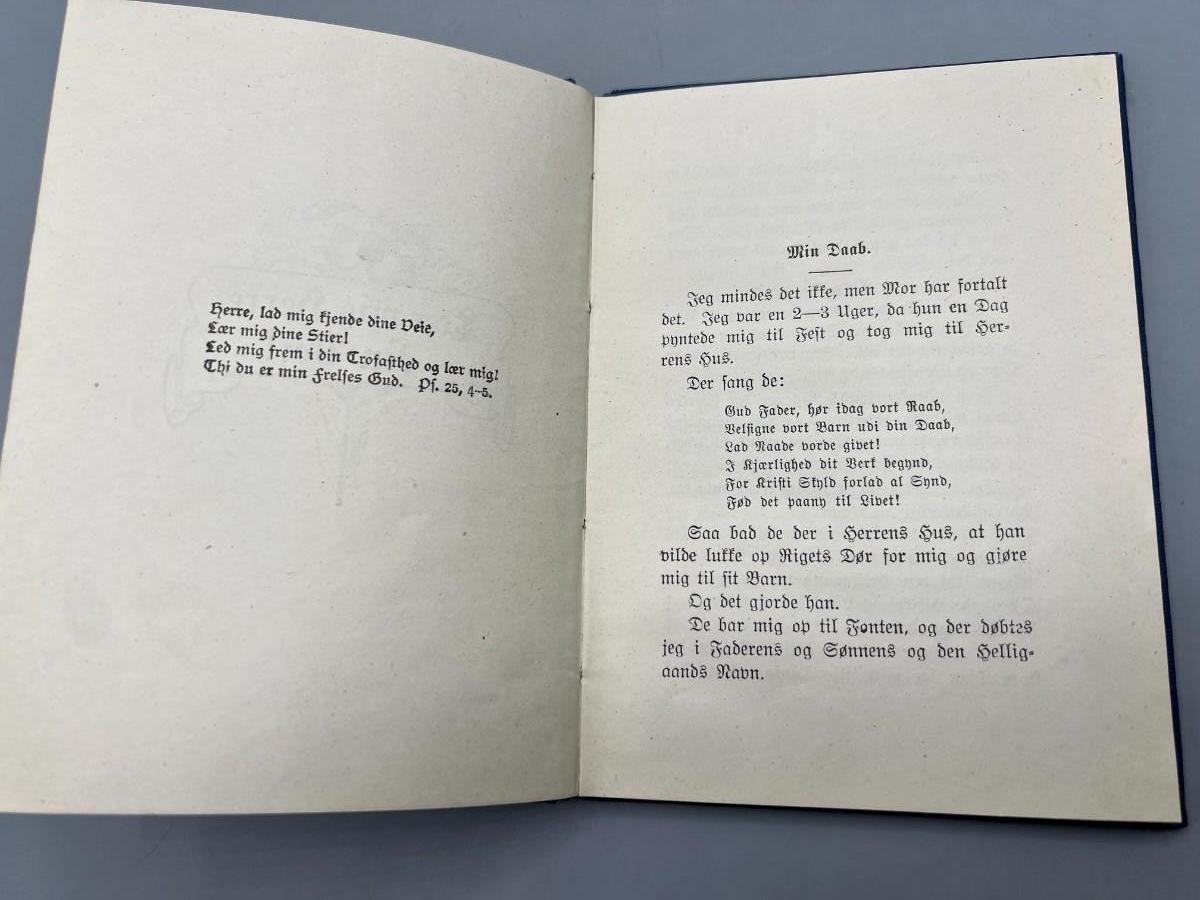 Herre, lad mig kjende dine Veie,
Lær mig dine Stier!
Led mig frem i din Trofasthed og lær mig!
Thi du er min Frelses Gud. Ps. 25, 4-5.
Min Daab.
Jeg mindes det ikke, men Mor har fortalt
det. Jeg var en 2—3 Uger, da hun en Dag
pyntede mig til Fest og tog mig til Her-
rens Hus.
Der sang de:
Gud Fader, hør idag vort Raab,
Velsigne vort Barn udi din Daab,
Lad Naade vorde givet!
I Kjærlighed dit Verk begynd,
For Kristi Skyld forlad al Synd,
Fød det paany til Livet!
Saa bad de der i Herrens Hus, at han
vilde lukke op Rigets Dør for mig og gjøre
mig til sit Barn.
Og det gjorde han.
De bar mig op til Fonten, og der døbtes
jeg i Faderens og Sønnens og den Hellig-
aands Navn.